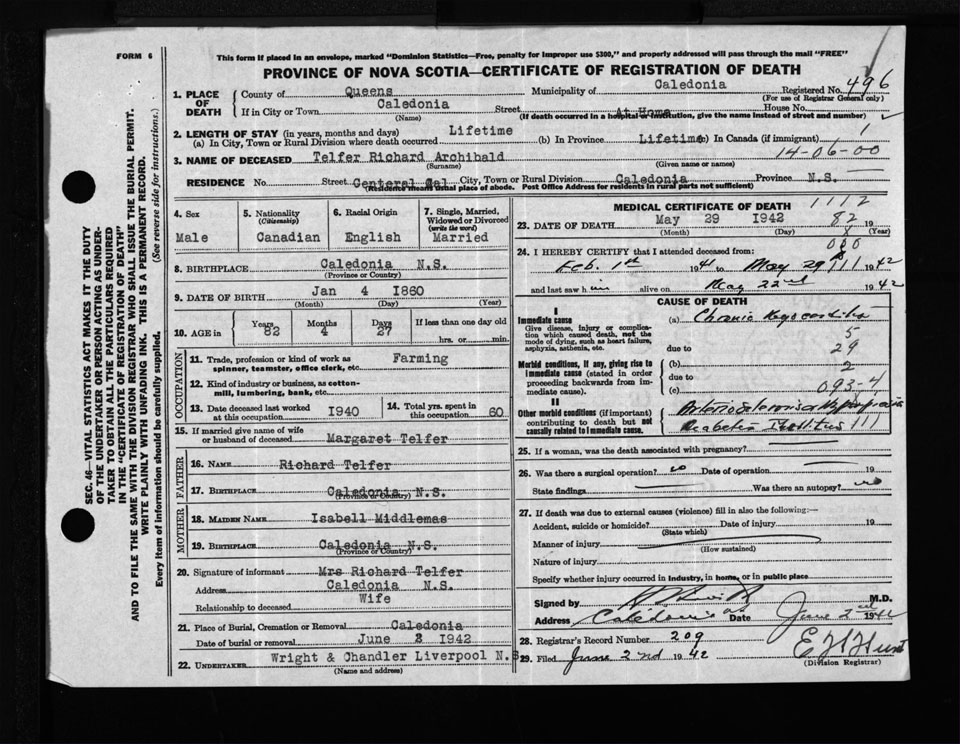 FORM 6
This form if placed in an envelope, marked "Dominion Statistics—Free, penalty for improper use $300," and properly addressed will pass through the mail "FREE"
PROVINCE OF NOVA SCOTIA—CERTIFICATE OF REGISTRATION OF DEATH
496
1. PLACE OF DEATH
County of Queens Municipality of Caledonia Registered No.
(For use of Registrar General only)
If in City or Town Caledonia Street At Home House No.
(Name) (If death occurred in a hospital or institution, give the name instead of street and number)
2. LENGTH OF STAY (in years, months and days)
(a) In City, Town or Rural Division where death occurred Lifetime (b) In Province Lifetime (c) In Canada (if immigrant) 1
3. NAME OF DECEASED Telfer Richard Archibald 14-06-00
(Surname) (Given name or names)
RESIDENCE No. Street Centeral Cal City, Town or Rural Division Caledonia Province N.S.
(Residence means usual place of abode. Post Office Address for residents in rural parts not sufficient)
4. Sex
Male
5. Nationality
(Citizenship)
Canadian
6. Racial Origin
English
7. Single, Married, Widowed or Divorced
(write the word)
Married
8. BIRTHPLACE Caledonia N.S.
(Province or Country)
9. DATE OF BIRTH Jan 4 1860
(Month) (Day) (Year)
10. AGE in
Years 82
Months 4
Days 27
If less than one day old
hrs. or min.
OCCUPATION
11. Trade, profession or kind of work as spinner, teamster, office clerk, etc. Farming
12. Kind of industry or business, as cotton-mill, lumbering, bank, etc.
13. Date deceased last worked at this occupation 1940
14. Total yrs. spent in this occupation 60
15. If married give name of wife or husband of deceased Margaret Telfer
FATHER
16. NAME Richard Telfer
17. BIRTHPLACE Caledonia N.S.
(Province or Country)
MOTHER
18. MAIDEN NAME Isabell Middlemas
19. BIRTHPLACE Caledonia N.S.
(Province or Country)
20. Signature of informant Mrs Richard Telfer
Address Caledonia N.S.
Relationship to deceased Wife
21. Place of Burial, Cremation or Removal Caledonia
Date of burial or removal June 2 1942
22. UNDERTAKER Wright & Chandler Liverpool N.S
(Name and address)
MEDICAL CERTIFICATE OF DEATH 1112
23. DATE OF DEATH May 29 1942 82 19
(Month) (Day) (Year)
24. I HEREBY CERTIFY that I attended deceased from:
Feb. 1st 1941 to May 29 1942
and last saw him alive on May 22nd 1942
CAUSE OF DEATH
I
Immediate cause
Give disease, injury or complication which caused death, not the mode of dying, such as heart failure, asphyxia, asthenia, etc.
(a) Chronic Myocarditis
5
due to 29
Morbid conditions, if any, giving rise to immediate cause (stated in order proceeding backwards from immediate cause).
(b) 2
due to
(c) 093-4
II
Other morbid conditions (if important) contributing to death but not causally related to immediate cause.
Diabetes Mellitus
25. If a woman, was the death associated with pregnancy?
26. Was there a surgical operation? no Date of operation 19
State findings Was there an autopsy? no
27. If death was due to external causes (violence) fill in also the following:—
Accident, suicide or homicide? Date of injury 19
(State which)
Manner of injury
(How sustained)
Nature of injury
Specify whether injury occurred in industry, in home, or in public place
Signed by M.D.
Address Caledonia NS Date June 2nd 1942
28. Registrar's Record Number 209
29. Filed June 2nd 1942
E H Hunt
(Division Registrar)
SEC. 46—VITAL STATISTICS ACT MAKES IT THE DUTY
OF THE UNDERTAKER OR PERSON ACTING AS UNDER-
TAKER TO OBTAIN ALL THE PARTICULARS REQUIRED
IN THE "CERTIFICATE OF REGISTRATION OF DEATH"
AND TO FILE THE SAME WITH THE DIVISION REGISTRAR WHO SHALL ISSUE THE BURIAL PERMIT.
WRITE PLAINLY WITH UNFADING INK. THIS IS A PERMANENT RECORD.
Every item of information should be carefully supplied. (See reverse side for instructions.)